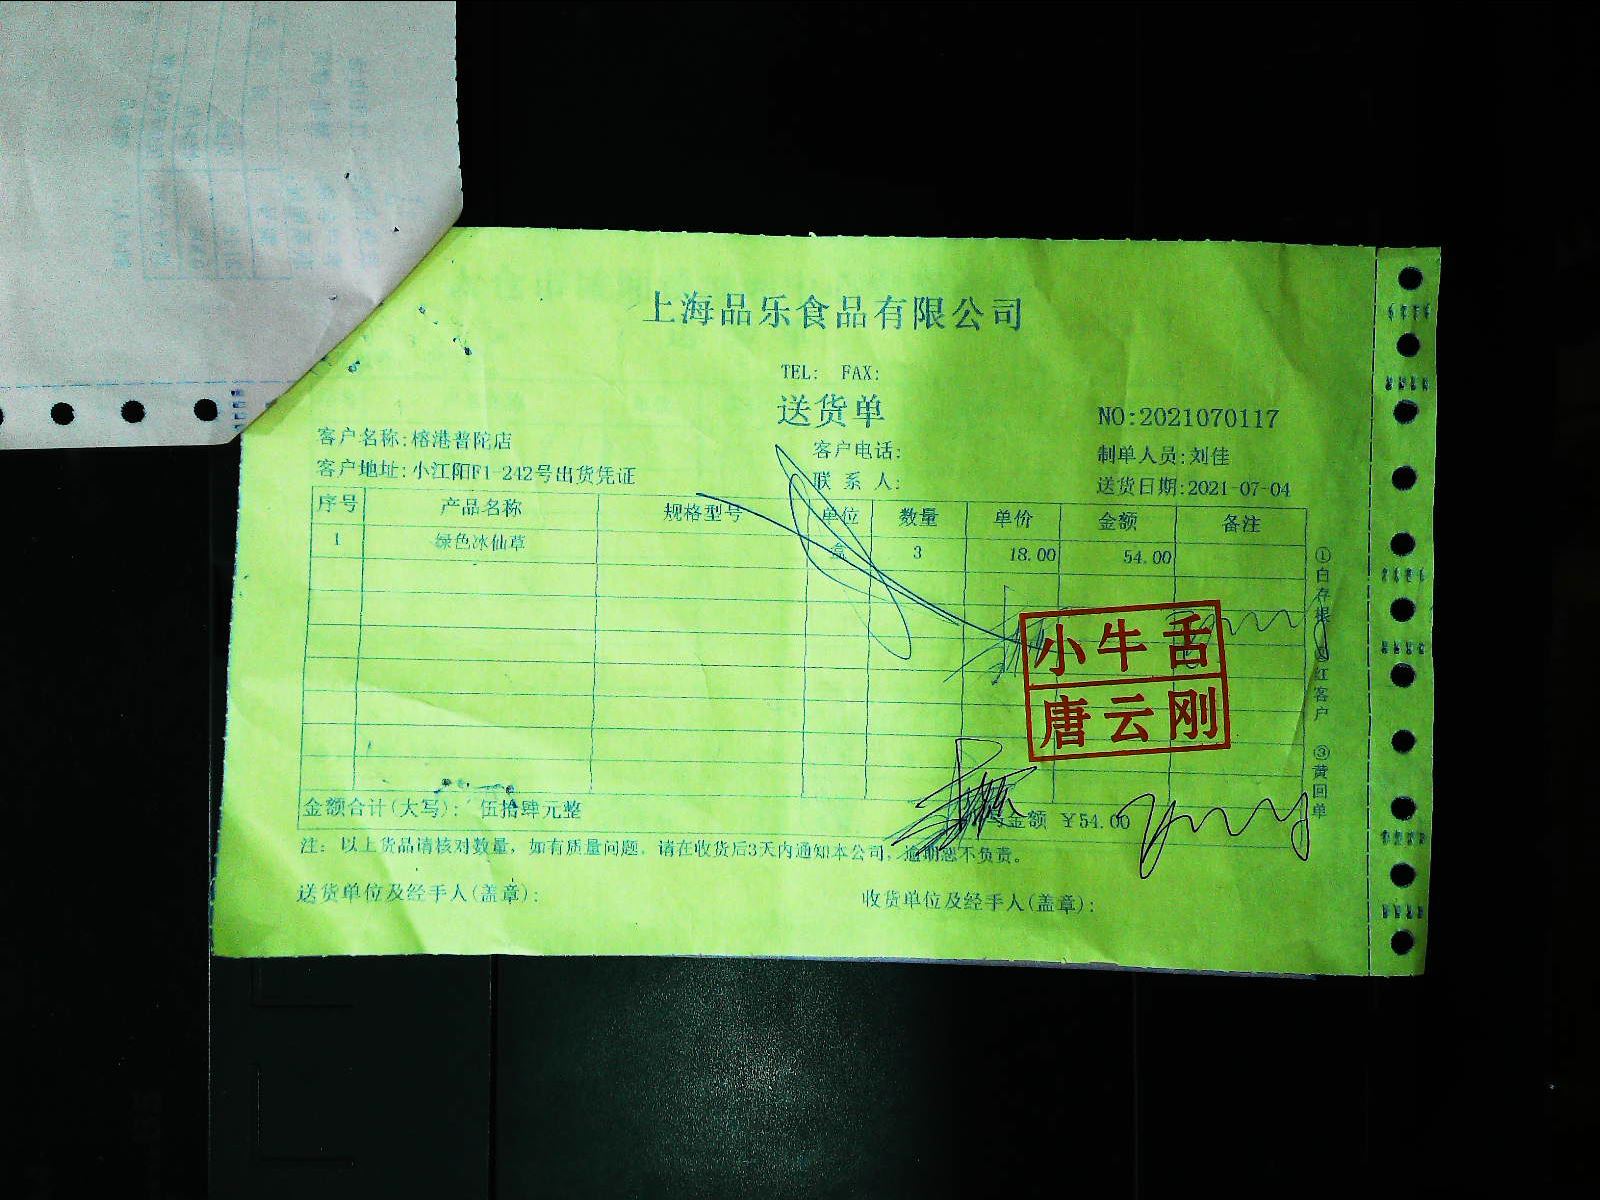 上海品乐食品有限公司
TEL: FAX:
送货单
NO:2021070117
客户名称:榕港普陀店
客户电话:
制单人员:刘佳
客户地址:小江阳F1-242号出货凭证
联系人:
送货日期:2021-07-04
序号 产品名称 规格型号 单位 数量 单价 金额 备注
1 绿色冰仙草 盒 3 18.00 54.00
小牛舌
唐云刚
金额合计(大写): 伍拾肆元整
写金额 ¥54.00
注: 以上货品请核对数量, 如有质量问题, 请在收货后3天内通知本公司, 逾期恕不负责。
送货单位及经手人(盖章):
收货单位及经手人(盖章):
①白存根 ②红客户 ③黄回单